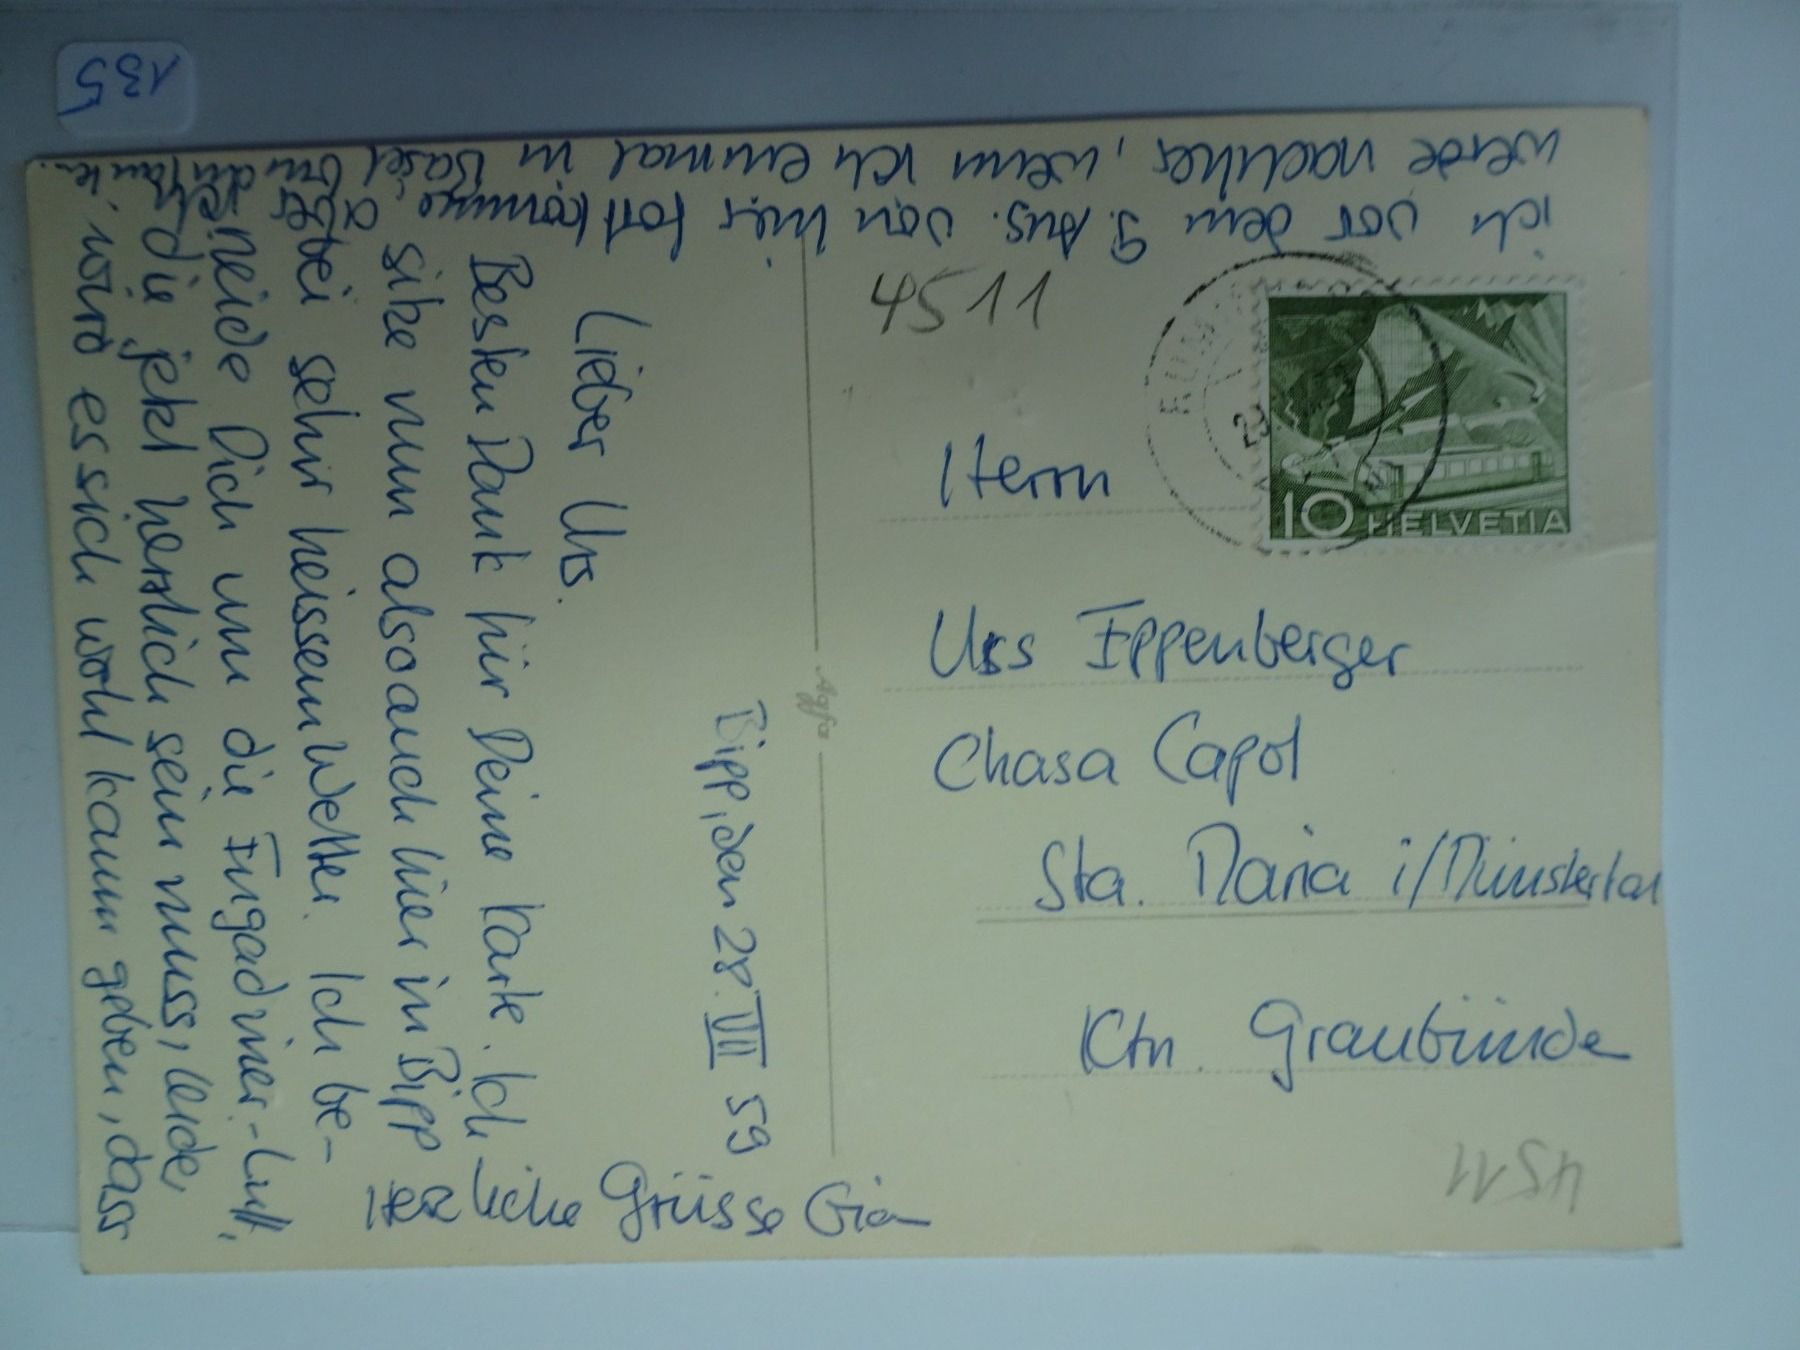 135
Bipp, den 28. VII 59
Lieber Urs.
Besten Dank für Deine Karte. Ich
sitze nun also auch hier in Bipp
bei sehr heissem Wetter. Ich be-
neide Dich um die Engadiner-Luft,
die jetzt herrlich sein muss, leider
wird es sich wohl kaum geben, dass
ich vor dem 9. Aug. von hier fortkomme,
werde nachher, wenn ich einmal in Basel
aber
Herzliche Grüsse Gian
Agfa
4511
10 HELVETIA
Herrn
Urs Eppenberger
Chasa Capol
Sta. Maria i/Münstertal
Ktn. Graubünden
4511